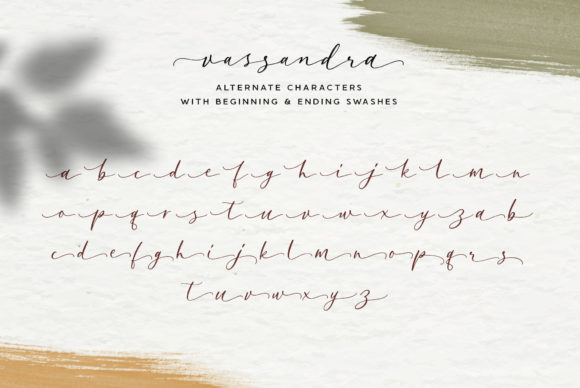 vassandra
ALTERNATE CHARACTERS
WITH BEGINNING & ENDING SWASHES
a b c d e f g h i j k l m n
o p q r s t u v w x y z a b
c d e f g h i j k l m n o p q r s
t u v w x y z